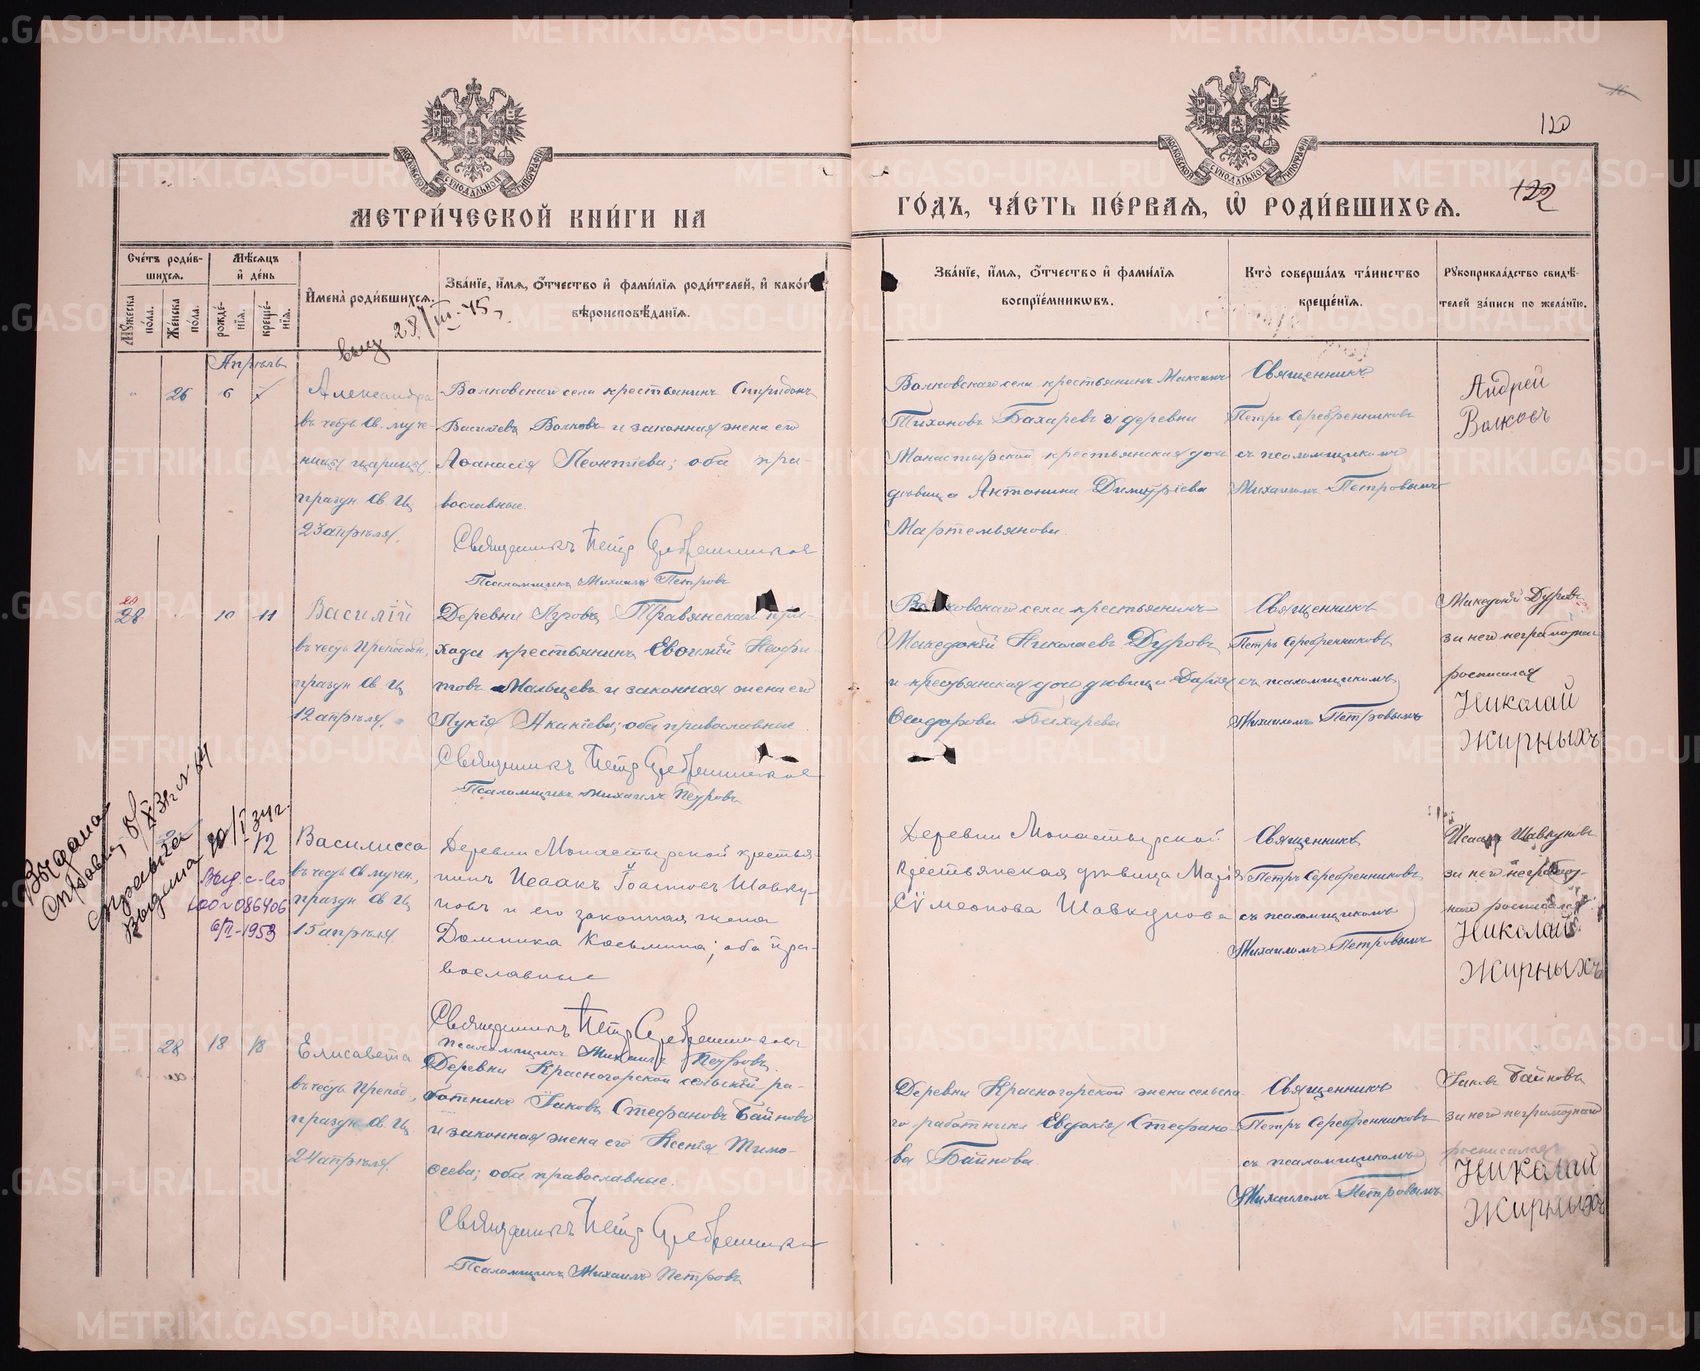 МЕТРИ́ЧЕСКОЙ КНИ́ГИ НА
ГО́ДЪ, ЧА́СТЬ ПЕ́РВАЯ, Ѡ РОДИ́ВШИХСЯ.
120
122
Сче́тъ роди́в-
шихся.
Мѣ́сяцъ
и де́нь
Мꙋ́жеска по́ла.
Же́нска по́ла.
рожде́-
нїя.
креще́-
нїя.
И҆мена̀ роди́вшихся.
Зва́нїе, и҆́мя, ѻ҆́тчество и҆ фами́лїя роди́телей, и҆ како́г
вѣроисповѣ́данїя.
Зва́нїе, и҆́мя, ѻ҆́тчество и҆ фами́лїя
воспрїе́мниковъ.
Кто̀ соверша́лъ та́инство
креще́нїя.
Рꙋкоприкла́дство свидѣ́-
телей за́писи по жела́нїю.
28/III-45
Апрѣль
26 6 7
Александра
въ честь Св. муче-
ницы царицы,
праздн. Св. Ц.
23 апрѣля.
Волковскаго села крестьянинъ Спиридонъ
Василіевъ Волковъ и законная жена его
Афанасія Леонтіева; оба пра-
вославные.
Священникъ Петръ Серебренниковъ
Псаломщикъ Михаилъ Петровъ
Волковскаго села крестьянинъ Максимъ
Тихоновъ Бахаревъ и деревни
Монастырской крестьянская дочь
дѣвица Антонина Димитріева
Мартемьянова.
Священникъ
Петръ Серебренниковъ
съ псаломщикомъ
Михаиломъ Петровымъ
Андрей
Волковъ
28 10 11
Василій
въ честь Преподобн.,
праздн. Св. Ц.
12 апрѣля.
Деревни Травянскаго при-
хода крестьянинъ Евѳимій Неофи-
товъ Мальцевъ и законная жена его
Лукія Акакіева; оба православные
Священникъ Петръ Серебренниковъ
Псаломщикъ Михаилъ Петровъ
Волковскаго села крестьянинъ
Македоній Николаевъ Дуровъ
и крестьянская дочь дѣвица Дарія
Ѳеодорова Бахарева
Священникъ
Петръ Серебренниковъ
съ псаломщикомъ
Михаиломъ Петровымъ
Македоній Дуровъ
за него неграмотнаго
росписался
Николай
Жирныхъ
Выдана
справка
выдана 10/I 34 г.
12
Выд. с-во
№ 086406
6/II-1953
Василисса
въ честь Св. мучен.,
праздн. Св. Ц.
15 апрѣля.
Деревни Монастырской крестья-
нинъ Исаакъ Іоанновъ Шавку-
новъ и его законная жена
Домника Косьмина; оба пра-
вославные
Священникъ Петръ Серебренниковъ
Псаломщикъ Михаилъ Петровъ.
Деревни Монастырской
крестьянская дѣвица Марія
Сѵмеонова Шавкунова
Священникъ
Петръ Серебренниковъ
съ псаломщикомъ
Михаиломъ Петровымъ
Исаакъ Шавкуновъ
за него неграмот-
наго росписался
Николай
Жирныхъ
28 18 18
Елисавета
въ честь Препод.,
праздн. Св. Ц.
24 апрѣля.
Деревни Красногорской сельскій ра-
ботникъ Іаковъ Стефановъ Байновъ
и законная жена его Ксенія Тимо-
ѳеева; оба православные.
Священникъ Петръ Серебренниковъ
Псаломщикъ Михаилъ Петровъ
Деревни Красногорской жена сельска-
го работника Евдокія Стефано-
ва Байнова.
Священникъ
Петръ Серебренниковъ
съ псаломщикомъ
Михаиломъ Петровымъ
Іаковъ Байновъ
за него неграмотнаго
росписался
Николай
Жирныхъ
METRIKI.GASO-URAL.RU